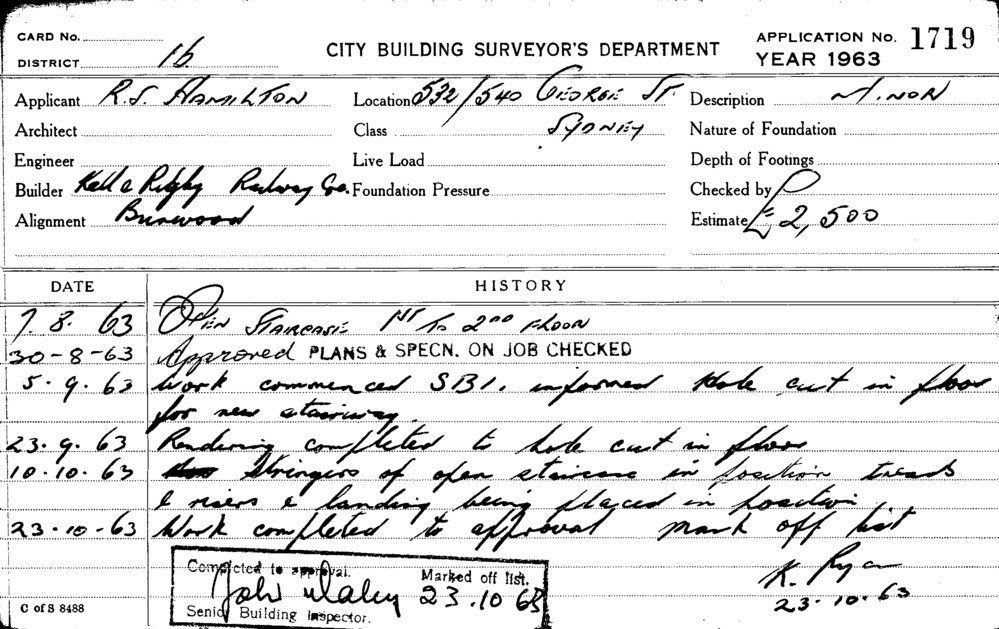 CARD No.
DISTRICT 16
CITY BUILDING SURVEYOR'S DEPARTMENT
APPLICATION No. 1719
YEAR 1963
Applicant R.J. HAMILTON Location 532/540 GEORGE ST. Description MINOR
Architect Class SYDNEY Nature of Foundation
Engineer Live Load Depth of Footings
Builder Kell & Rigby Railway Foundation Pressure Checked by
Alignment Burwood Estimate £ 2,500
DATE HISTORY
7. 8. 63 OPEN STAIRCASE 1ST TO 2ND FLOOR
30-8-63 Approved PLANS & SPECN. ON JOB CHECKED
5. 9. 63 Work commenced SBI. informed Hole cut in floor
for new stairway.
23. 9. 63 Rendering completed to hole cut in floor
10.10. 63 Stringers of open staircase in position treads
& risers & landing being placed in position
23-10-63 Work completed to approval mark off list
K. Ryan
23-10-63
Completed to approval. Marked off list.
John Daley 23.10 63
Senior Building Inspector.
C of S 8488